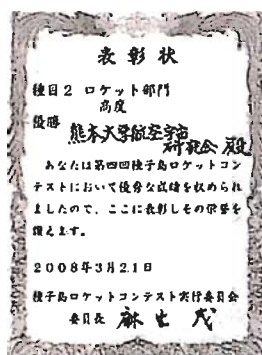 表彰状
種目2 ロケット部門
高度
優勝
熊本大学航空宇宙
研究会 殿
あなたは第四回種子島ロケットコン
テストにおいて優秀な成績を収められ
ましたので、ここに表彰しその栄誉を
讃えます。
2008年3月21日
種子島ロケットコンテスト実行委員会
委員長 麻生 茂